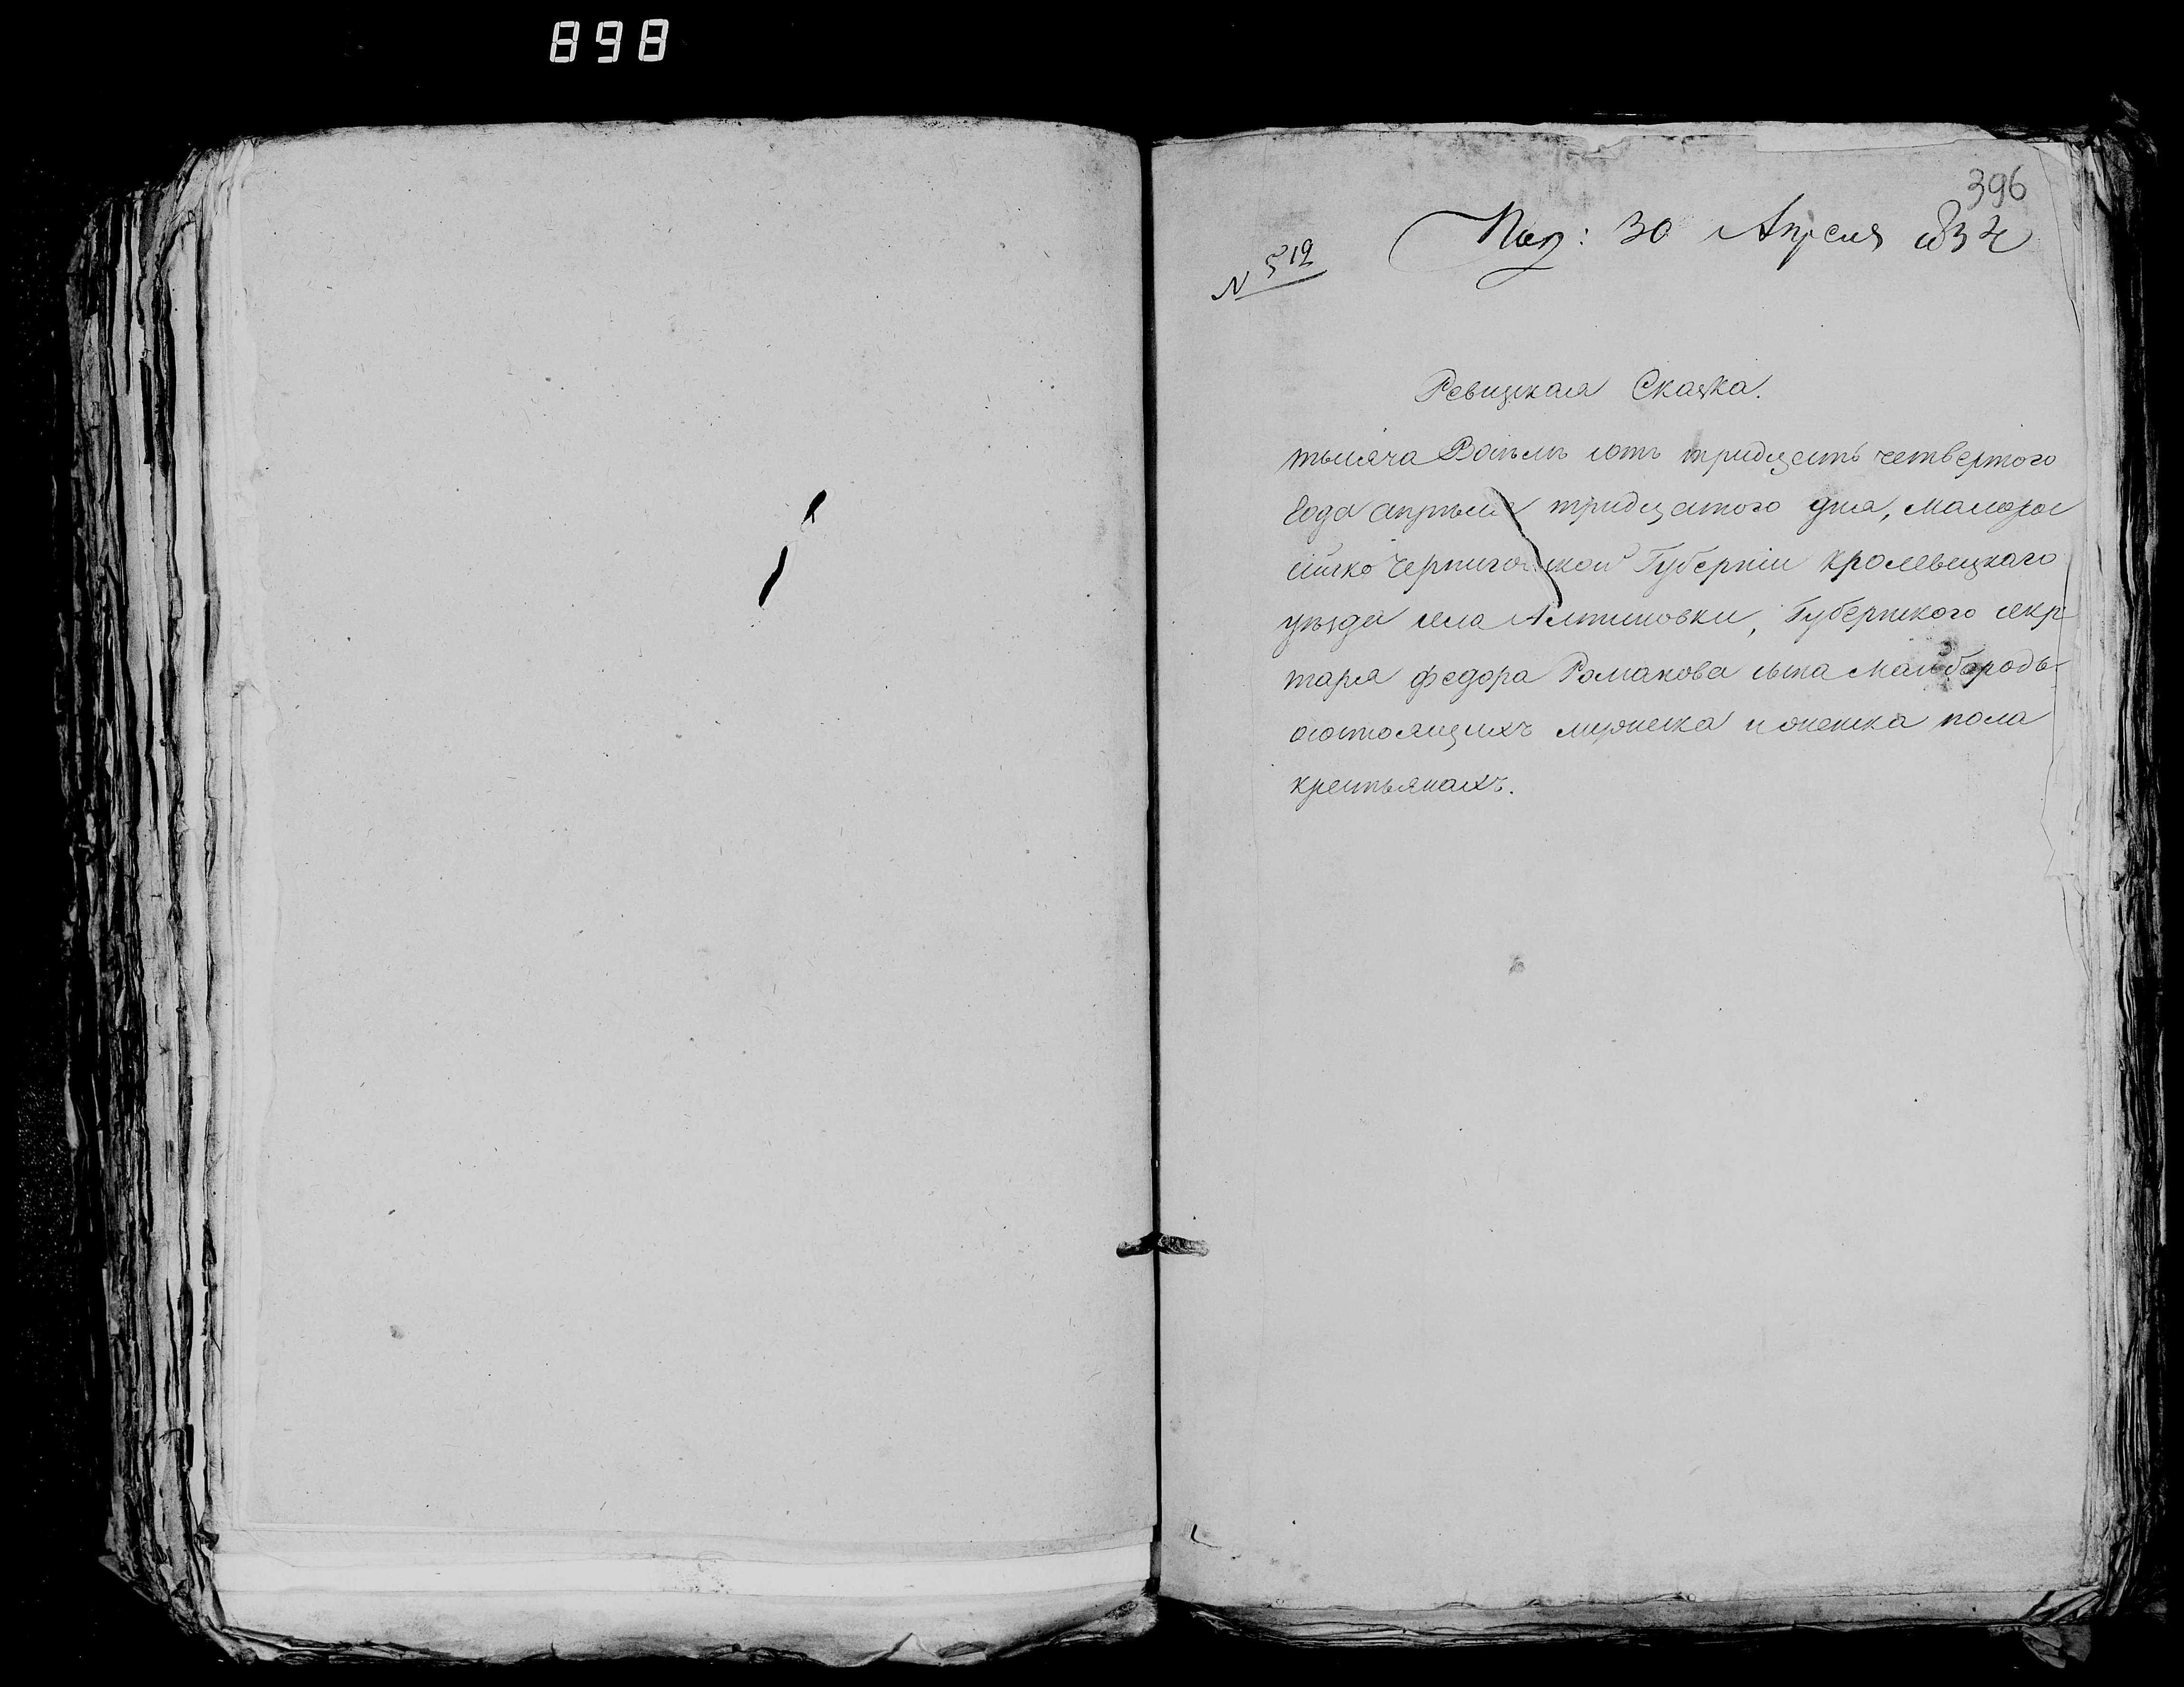 898
396
№ 512
Пол: 30 Апреля 1834
Ревизкая Сказка.
тысяча Восемъ сотъ тридцать четвертого
Года апреля тридцатого дня, Малорос
сійско Черниговской Губерніи Кролевецкаго
уезда села Алтиновки, Губернского секр
таря Федора Романова сына Майбароды
осостоящихъ мужеска и женска пола
крестьянахъ.